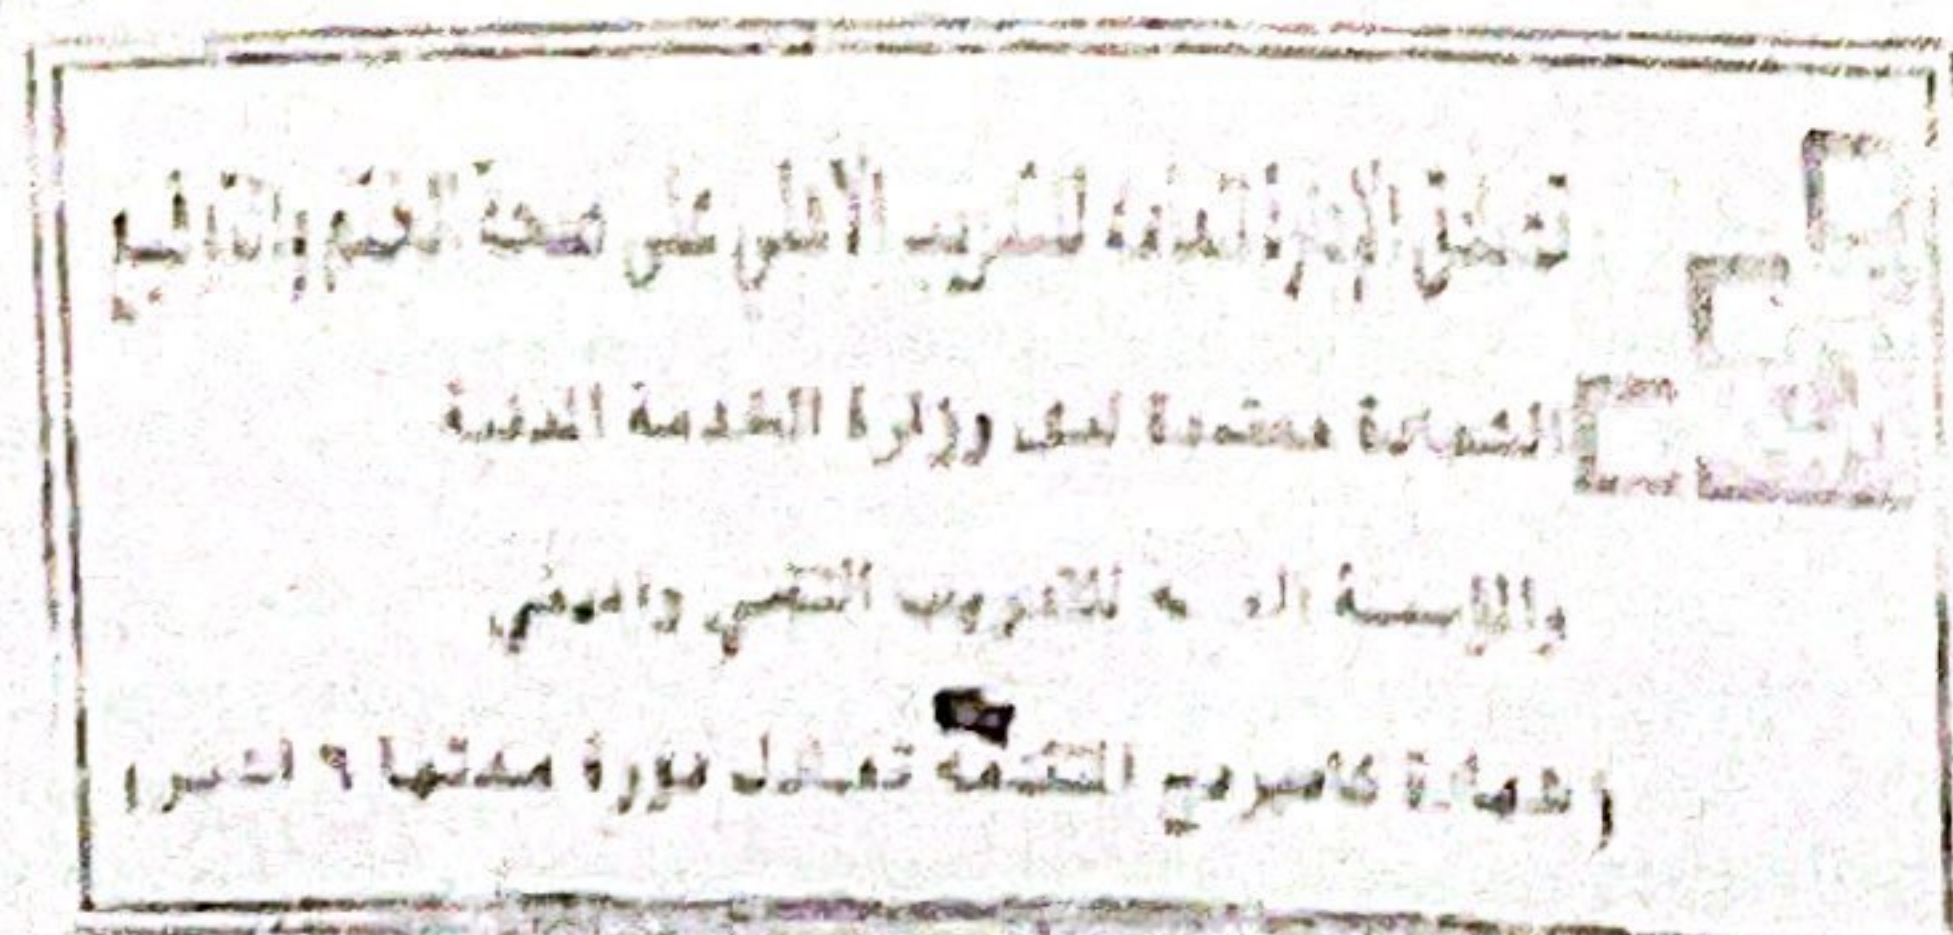 تصادق الإدارة العامة للتدريب الأهلي على صحة الختم والتوقيع
الشهادة معتمدة لدى وزارة الخدمة المدنية
والمؤسسة للتدريب التقني والمهني
( شهادة البرامج التقدمة تعادل دورة مدتها ٩ اشهر )